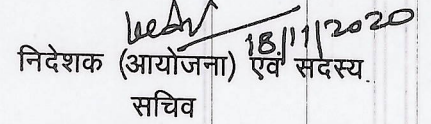 18/11/2020
निदेशक (आयोजना) एवं सदस्य
सचिव